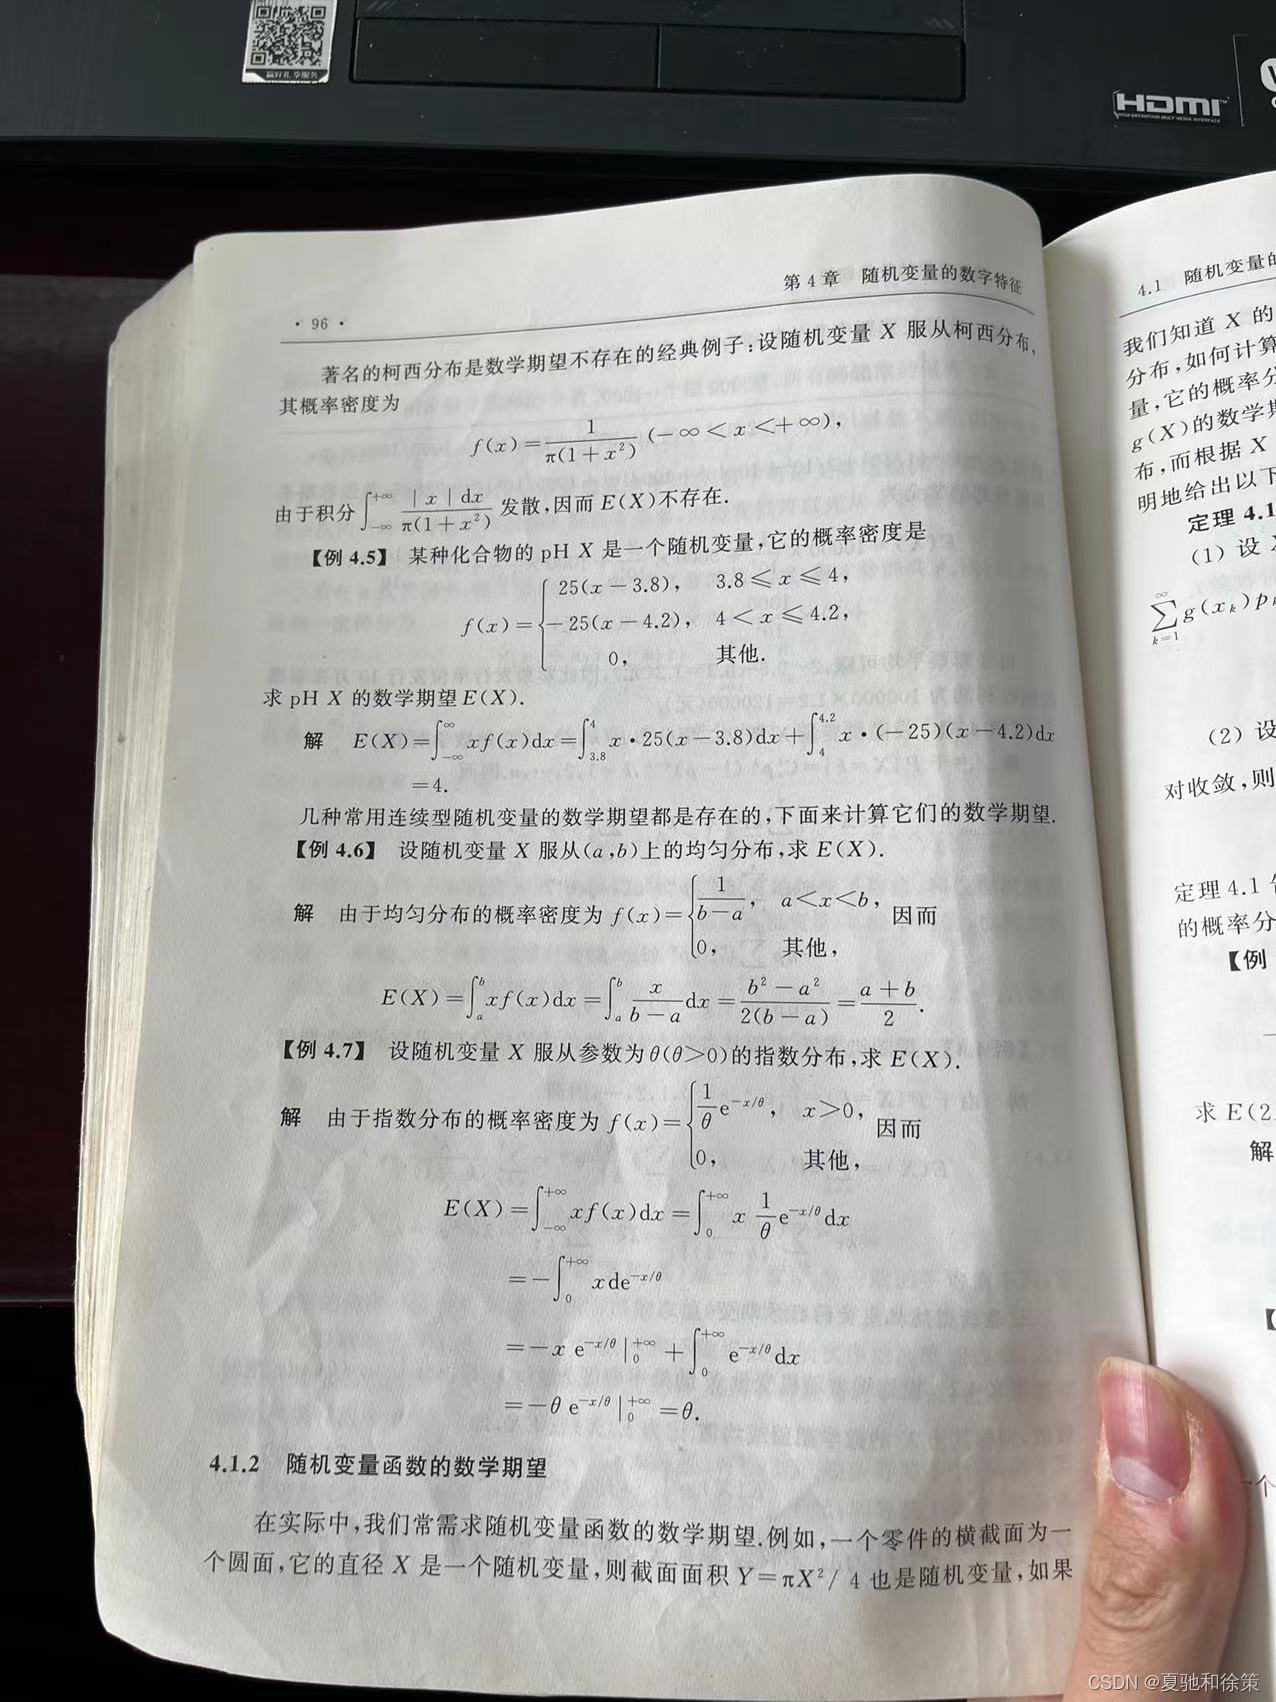 赢好礼 享服务
HDMI
HIGH-DEFINITION MULTIMEDIA INTERFACE
· 96 ·
第 4 章 随机变量的数字特征
著名的柯西分布是数学期望不存在的经典例子:设随机变量 X 服从柯西分布,
其概率密度为
f(x)=1/(π(1+x²)) (-∞<x<+∞),
由于积分∫_{-∞}^{+∞} |x|dx/(π(1+x²)) 发散,因而 E(X)不存在.
【例 4.5】 某种化合物的 pH X 是一个随机变量,它的概率密度是
f(x)={ 25(x-3.8), 3.8≤x≤4,
-25(x-4.2), 4<x≤4.2,
0, 其他.
求 pH X 的数学期望 E(X).
解 E(X)=∫_{-∞}^{∞} xf(x)dx=∫_{3.8}^{4} x·25(x-3.8)dx+∫_{4}^{4.2} x·(-25)(x-4.2)dx
=4.
几种常用连续型随机变量的数学期望都是存在的,下面来计算它们的数学期望.
【例 4.6】 设随机变量 X 服从(a,b)上的均匀分布,求 E(X).
解 由于均匀分布的概率密度为 f(x)={ 1/(b-a), a<x<b, 因而
0, 其他,
E(X)=∫_a^b xf(x)dx=∫_a^b x/(b-a) dx=(b²-a²)/(2(b-a))=(a+b)/2.
【例 4.7】 设随机变量 X 服从参数为 θ(θ>0)的指数分布,求 E(X).
解 由于指数分布的概率密度为 f(x)={ 1/θ e^{-x/θ}, x>0, 因而
0, 其他,
E(X)=∫_{-∞}^{+∞} xf(x)dx=∫_0^{+∞} x 1/θ e^{-x/θ}dx
=-∫_0^{+∞} xde^{-x/θ}
=-x e^{-x/θ}|_0^{+∞}+∫_0^{+∞} e^{-x/θ}dx
=-θ e^{-x/θ}|_0^{+∞}=θ.
4.1.2 随机变量函数的数学期望
在实际中,我们常需求随机变量函数的数学期望.例如,一个零件的横截面为一
个圆面,它的直径 X 是一个随机变量,则截面面积 Y=πX²/4 也是随机变量,如果
4.1 随机变量的
我们知道 X 的
分布,如何计算
量,它的概率分
g(X)的数学期
布,而根据 X
明地给出以下
定理 4.1
(1) 设
∑_{k=1}^{∞} g(x_k)p
(2) 设
对收敛,则
定理 4.1
的概率分
【例
求 E(2
解
【
一个
CSDN @夏驰和徐策